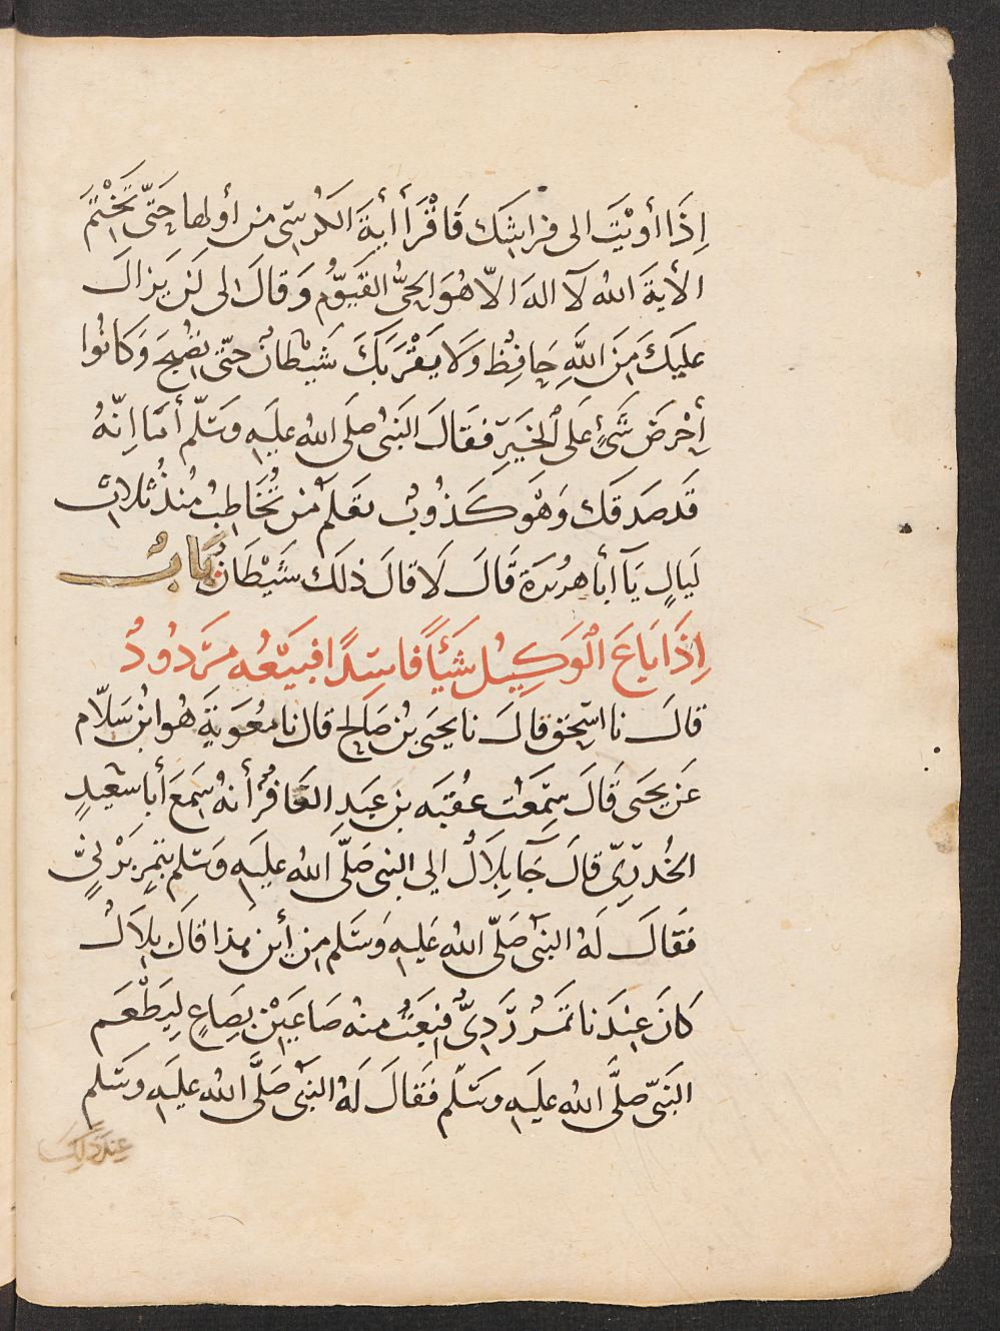 إِذَا أَوَيْتَ الى فِرَاشِكَ فَاقْرَأ أيَةَ الكُرْسِيّ مِن أولها حَتّى تَخْتِمَ
الأيَةَ اللهُ لَآ الهَ الّا هُوَ الحَيُّ القَيُّوم وَقالَ لى لَن يَزالَ
عليكَ مِنَ اللَّهِ حَافِظٌ وَلَا يَقْرَبَكَ شَيْطانٌ حتّى تصْبِحَ وَكَانُوا
أحْرَصَ شَىْءٍ عَلى الخَيْرِ فَقَالَ النَبىُّ صَلى اللهُ عليهِ وَسَلّم أمَا اِنّهُ
قَد صَدَقكَ وَهْوَ كَذُوبٌ تَعْلَمُ مَن تُخَاطِبُ مُنذُ ثَلَاثِ
لَيَالٍ يَآ أبا هُرَيْرَة قَالَ لَا قالَ ذلكَ شَيْطَانٌ بَابُ
اِذَا بَاعَ الوَكِيْلُ شَيْئًا فاسِدًا فبَيْعُه مَرْدُودٌ
قالَ نا اسْحَق قالَ نا يحيَى بْنُ صَالِحٍ قال نا مُعٰوِيَةُ هُوَ ابْنُ سَلَّام
عَن يحيَى قَالَ سَمِعْتُ عُقبَه بن عَبدِ الغَافِر أنهُ سَمِعَ أبا سَعيدٍ
الخُدْرِيِّ قالَ جَآ بِلَالٌ الى النبىِ صَلَّى اللهُ عليهِ وَسَلم بتمرٍ بَرْنِيٍّ
فَقَالَ لَهُ النبىُ صَلّى اللهُ عَليهِ وَسَلم مِن أيْنَ هذا قالَ بِلَالٌ
كانَ عِندَنا تَمْرٌ رَدِىٌّ فبِعْتُ منهُ صَاعَيْنِ بِصَاعٍ لِيَطْعَمَ
النَبىّ صَلَّى اللهُ عليهِ وسَلّم فَقَالَ لَهُ النبىُ صَلَّى اللهُ عليهِ وسَلم
عِندَ ذلِكَ